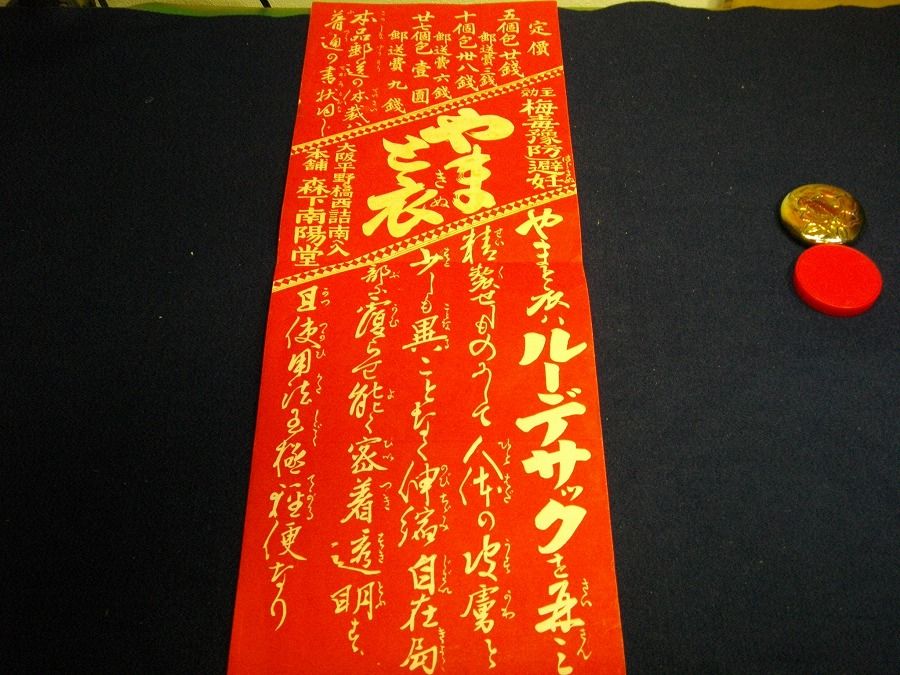 定價
五個包廿錢
郵送費三錢
十個包卅八錢
郵送費六錢
廿七個包壹圓
郵送費九錢
本品郵送の体裁ハ
普通の書状同じ
主効
梅毒豫防避妊
やまと衣
きぬ
大阪平野橋西詰南へ入
本舗 森下南陽堂
やまと衣ハルーデサックを再三
精製せしものにして人体の皮膚と
少しも異ことなく伸縮自在局
部に覆らせ能く密着透明す
且使用法も極軽便なり